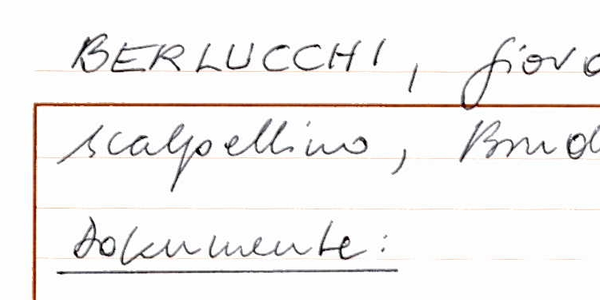 BERLUCCHI, Giova
scalpellino,
Dokumente: